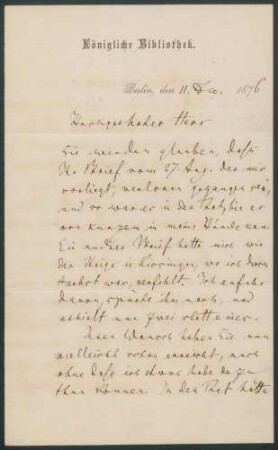 Königliche Bibliothek.
Berlin, den 11. Dec. 1876
Hochgeehrter Herr
Sie werden glauben, daß
Ihr Brief vom 27. Aug. der mir
vorliegt, verloren gegangen sei,
und so war er in der That, bis er
vor kurzem in meine Hände kam.
Ein andrer Brief hatte mich wie
der Ihrige in Kissingen, wo ich
war, verfehlt. Ich erfuhr
davon, spürte ihm nach, und
erhielt nun zwei statt eines.
Ihren Wunsch haben Sie nun
vielleicht schon erreicht, auch
ohne daß ich etwas habe dazu
thun können. In der That hätte